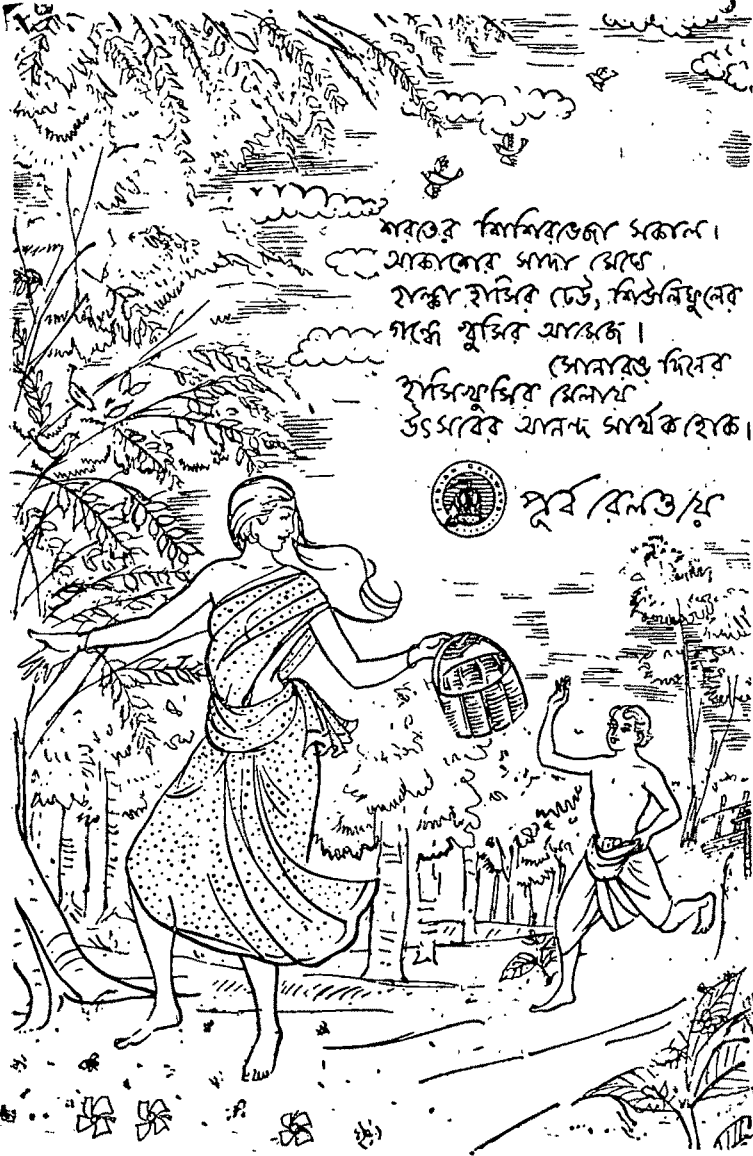 শরতের শিশিরভেজা সকাল।
আকাশের সাদা মেঘে
হাল্কা হাসির ঢেউ, শিউলিফুলের
গন্ধে খুসির আমেজ।
সোনারঙ দিনের
হাসিখুসির মেলায়
উৎসবের আনন্দ সার্থক হোক।
পূর্ব রেলওয়ে